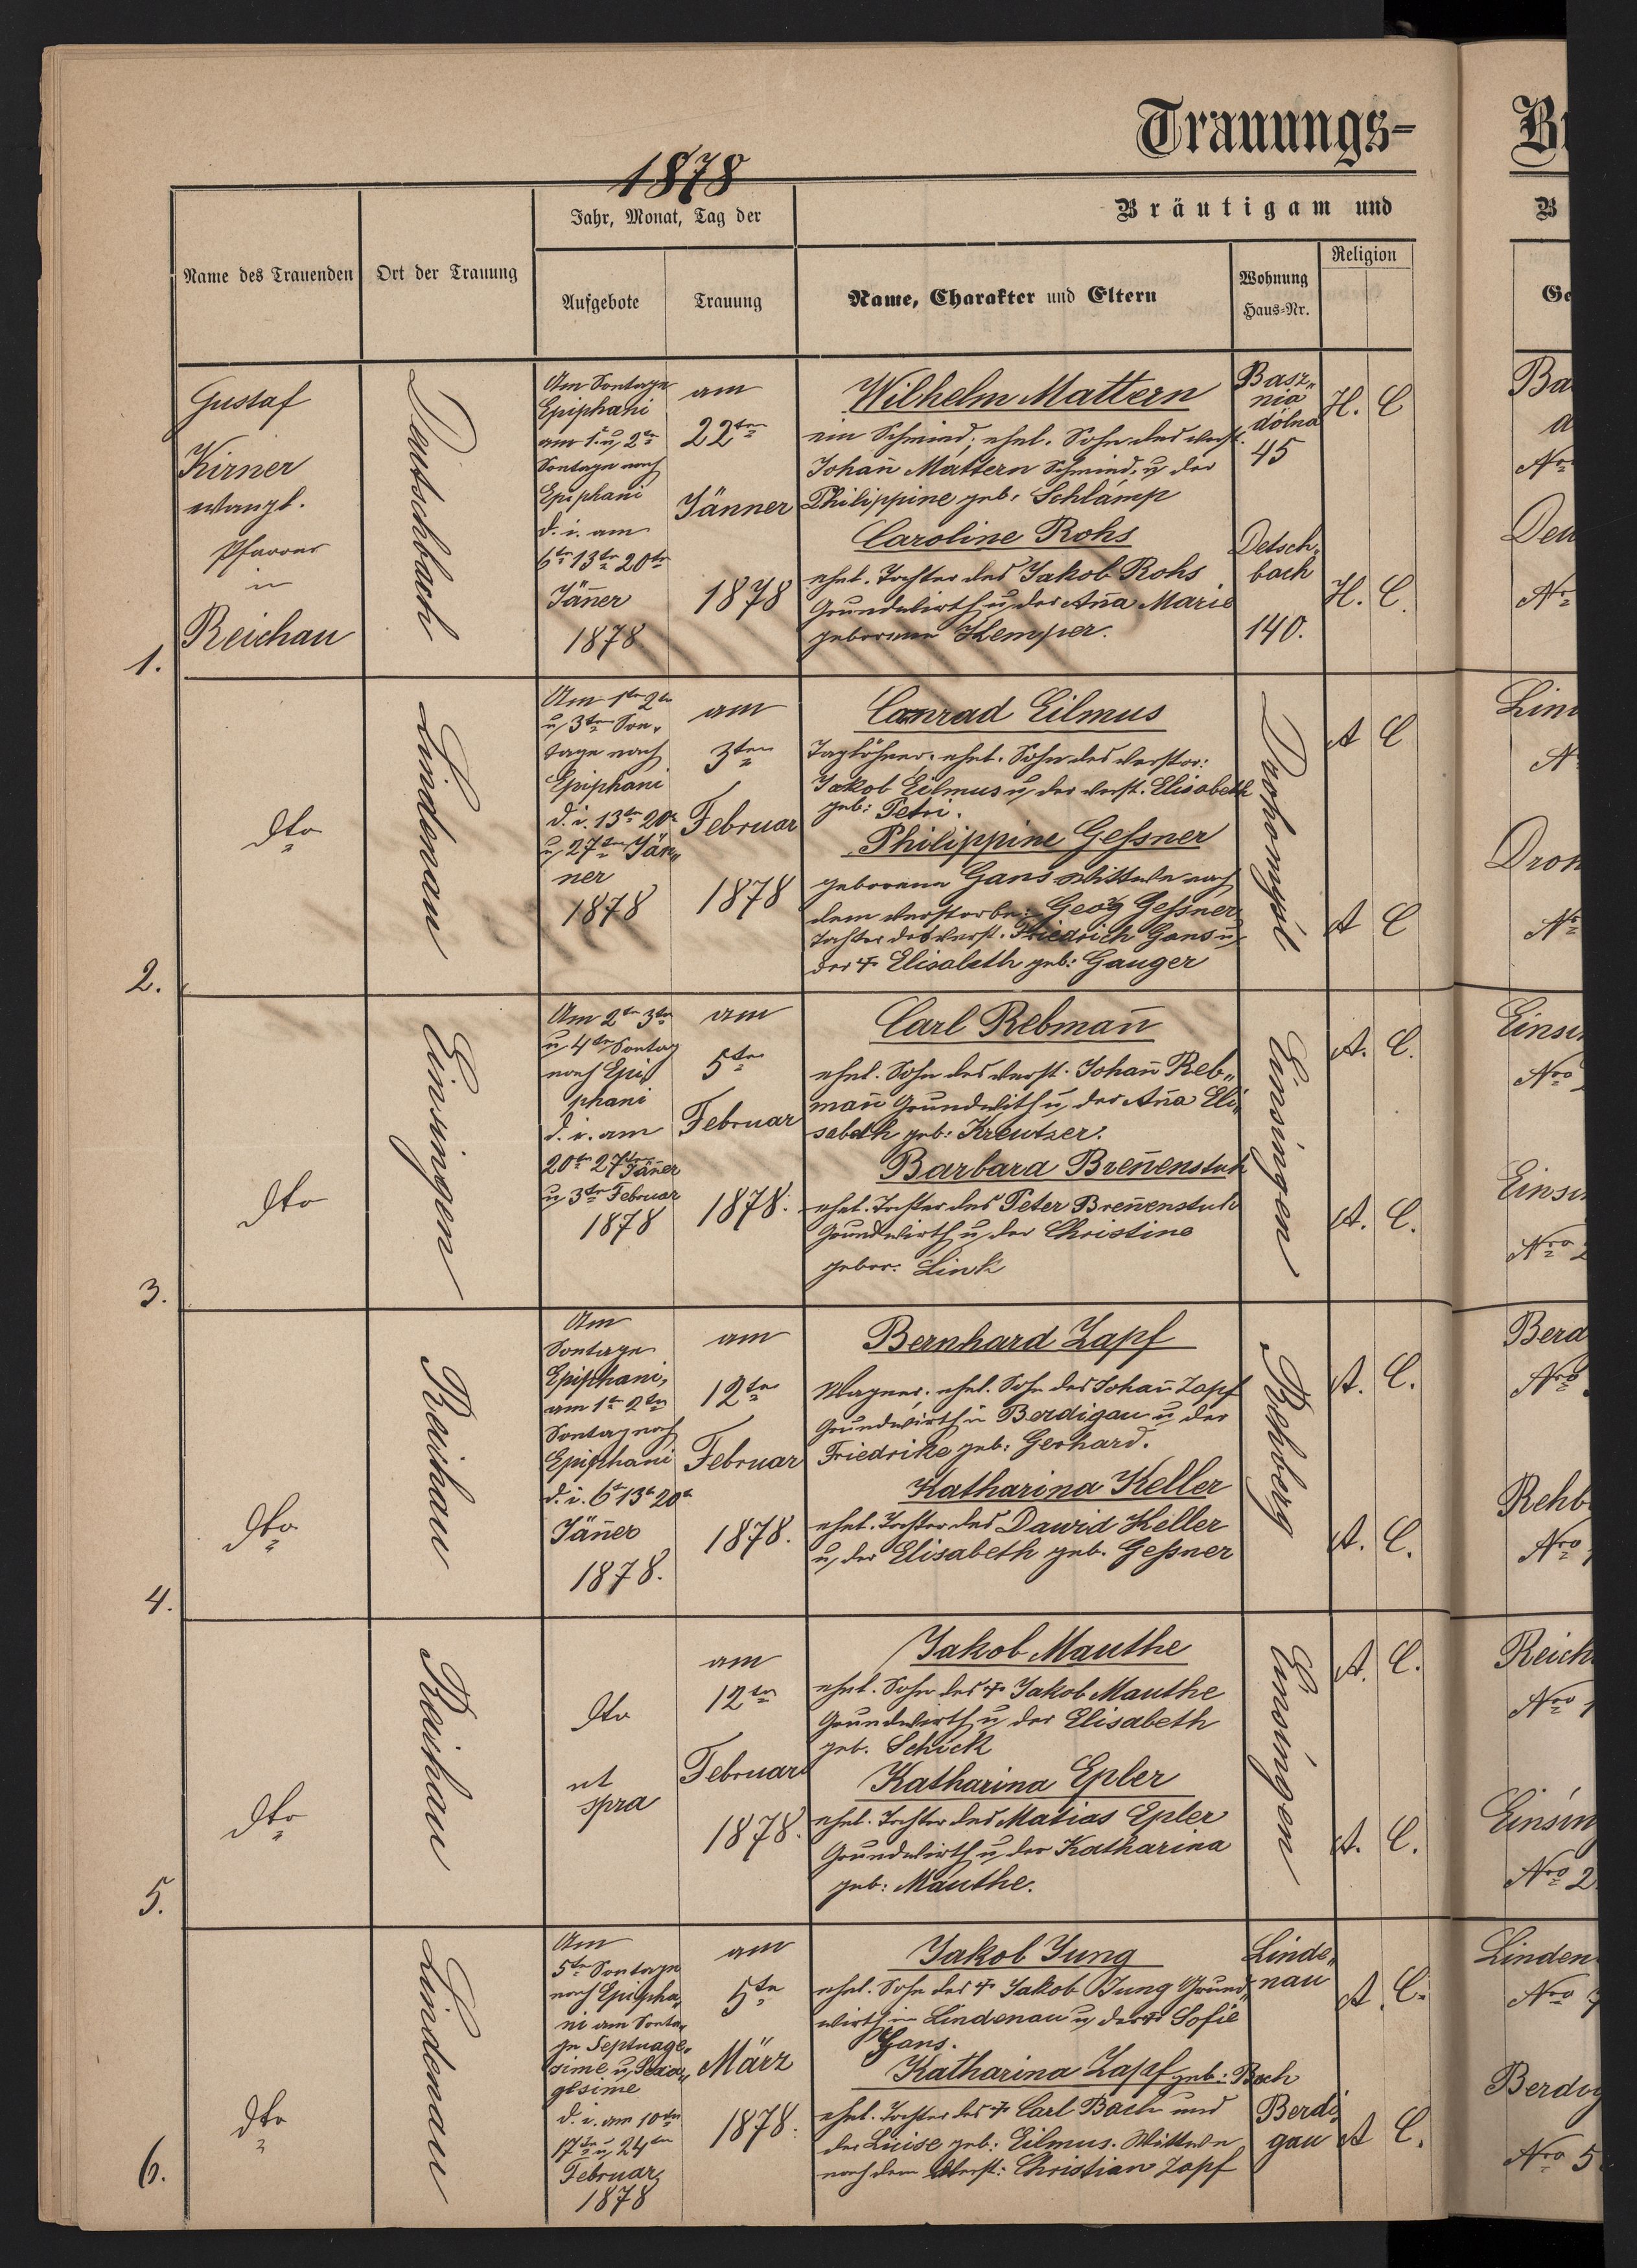 Trauungs-
1878
Name des Trauenden
Ort der Trauung
Jahr, Monat, Tag der
Aufgebote
Trauung
Bräutigam und
Name, Charakter und Eltern
Wohnung
Haus-Nr.
Religion
1.
Gustaf
Kirner
evangl.
Pfarrer
in
Reichau
Deutschbach
Am Sontage
Epiphani
am 1. u. 2ten
Sontage nach
Epiphani
d. i. am
6te 13te 20te
Jäñer
1878
am
22ten
Jänner
1878
Wilhelm Mattern
ein Schmied, ehel. Sohn des verst.
Johañ Mattern Schmied, u. der
Philippine geb. Schlamp
Caroline Rohs
ehel. Tochter des Jakob Rohs
Grundwirth u. der Aña Marie
geborene Kemper.
Basz„
nia
dolna
45
Detsch„
bach
140.
H. C
H. C.
2.
dto
Lindenau
Am 1te 2te
u. 3ten Son„
tage nach
Epiphani
d. i. 13te 20te
u. 27ten Jän„
ner
1878
am
3ten
Februar
1878
Conrad Eilmus
Taglöhner, ehel. Sohn des verstor:
Jakob Eilmus u. der verst. Elisabeth
geb: Petri.
Philippine Geßner
geborene Gans Wittwe nach
dem verstorbe: Georg Geßner
Tochter des verst. Friedrich Gans u.
der † Elisabeth geb: Gauger
Drohomyśl
A C
A C
3.
dto
Einsingen
Am 2te 3te
u. 4te Sontag
nach Epi
phani
d. i. am
20te 27ten Jäñer
u. 3te Februar
1878
am
5te
Februar
1878.
Carl Rebmañ
ehel. Sohn des verst. Johañ Reb„
mañ Grundwith u. der Aña Eli„
sabeth geb: Kreutzer.
Barbara Breñenstuh
ehel. Tochter des Peter Breñenstuh
Grundwirth u. der Christine
gebor: Link
Einsingen
A. C.
A. C.
4.
dto
Reichau
Am
Sontage
Epiphani,
am 1te 2ten
Sontag nach
Epiphani
d. i. 6te 13te 20te
Jäñer
1878.
am
12te
Februar
1878.
Bernhard Zapf
Wagner, ehel. Sohn des Johañ Zapf
Grundwirth in Berdigau u. der
Friedrike geb: Gerhard.
Katharina Keller
ehel. Tochter des Dawid Keller
u. der Elisabeth geb. Geßner
Rehberg
A. C.
A. C.
5.
dto
Reichau
dto
ut
spra
am
12ten
Februar
1878.
Jakob Mauthe
ehel. Sohn des † Jakob Mauthe
Grundwirth u. der Elisabeth
geb. Schick
Katharina Epler
ehel. Tochter des Matias Epler
Grundwirth u. der Katharina
geb: Mauthe.
Einsingen
A. C.
A. C.
6.
dto
Lindenau
Am
5te Sontage
nach Epipha„
ni am Sonta„
ge Septuage„
sime u. Sexa„
gesime
d. i. am 10ten
17te u. 24ten
Februar
1878
am
5te
März
1878.
Jakob Jung
ehel. Sohn des † Jakob Jung Grund„
wirth in Lindenau u. der † Sofie
Gans.
Katharina Zapf geb: Bach
ehel. Tochter des † Carl Bach und
der Luise geb: Eilmus. Wittwe
nach dem Verst: Christian Zapf
Linde„
nau
Berdi„
gau
A. C.
A C.